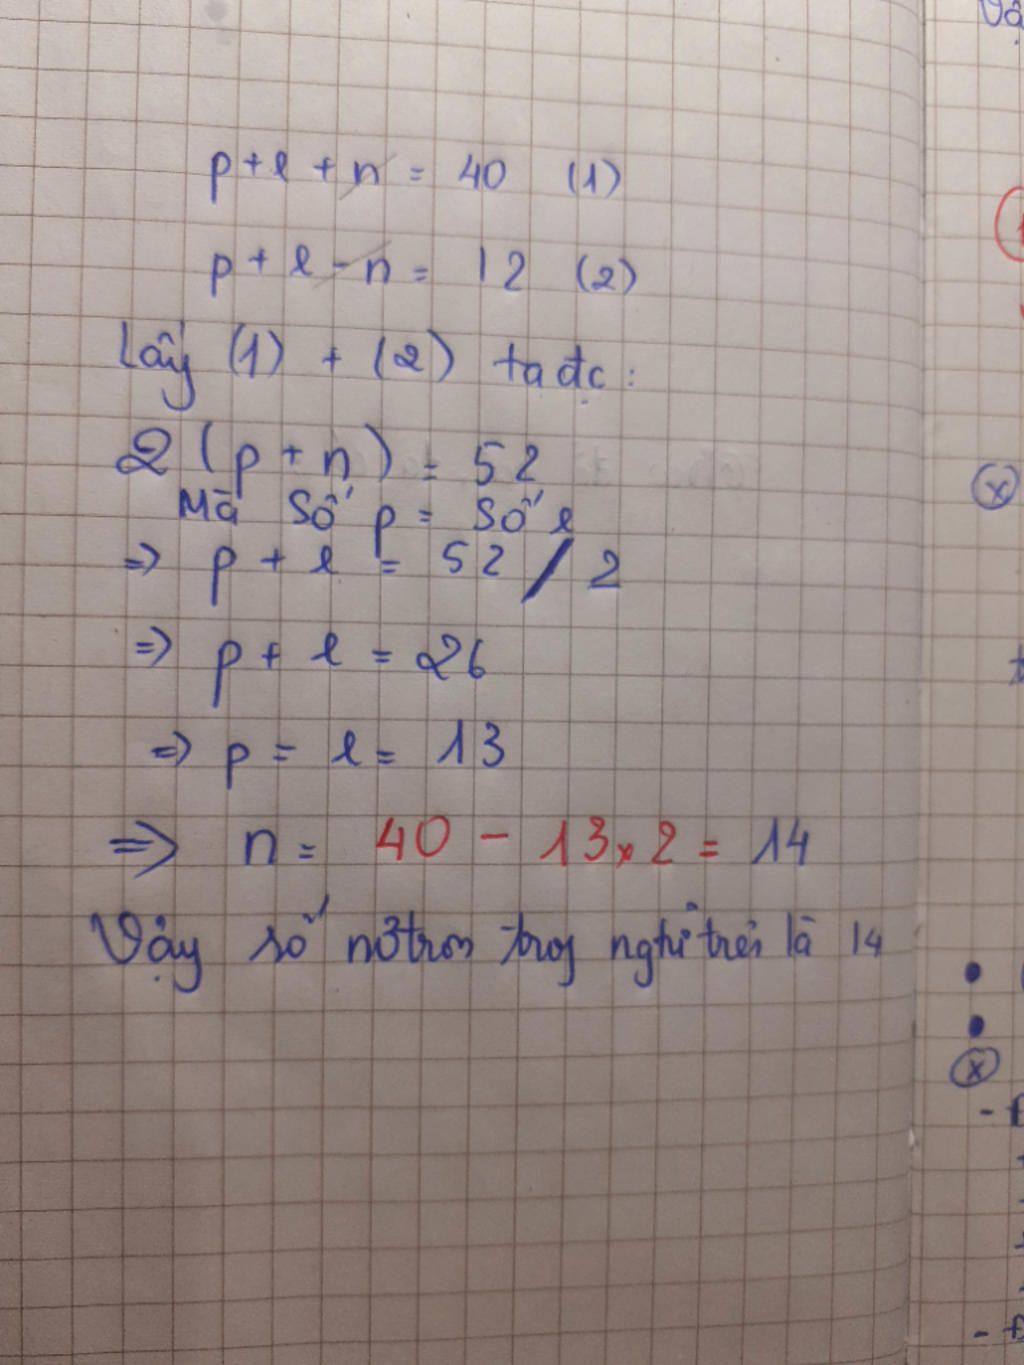 p + e + n = 40 (1)
p + e - n = 12 (2)
Lấy (1) + (2) ta đc:
2 (p + n) = 52
Mà số p = số e
=> p + e = 52 / 2
=> p + e = 26
=> p = e = 13
=> n = 40 - 13 x 2 = 14
Vậy số nơtron trog ngtử trên là 14